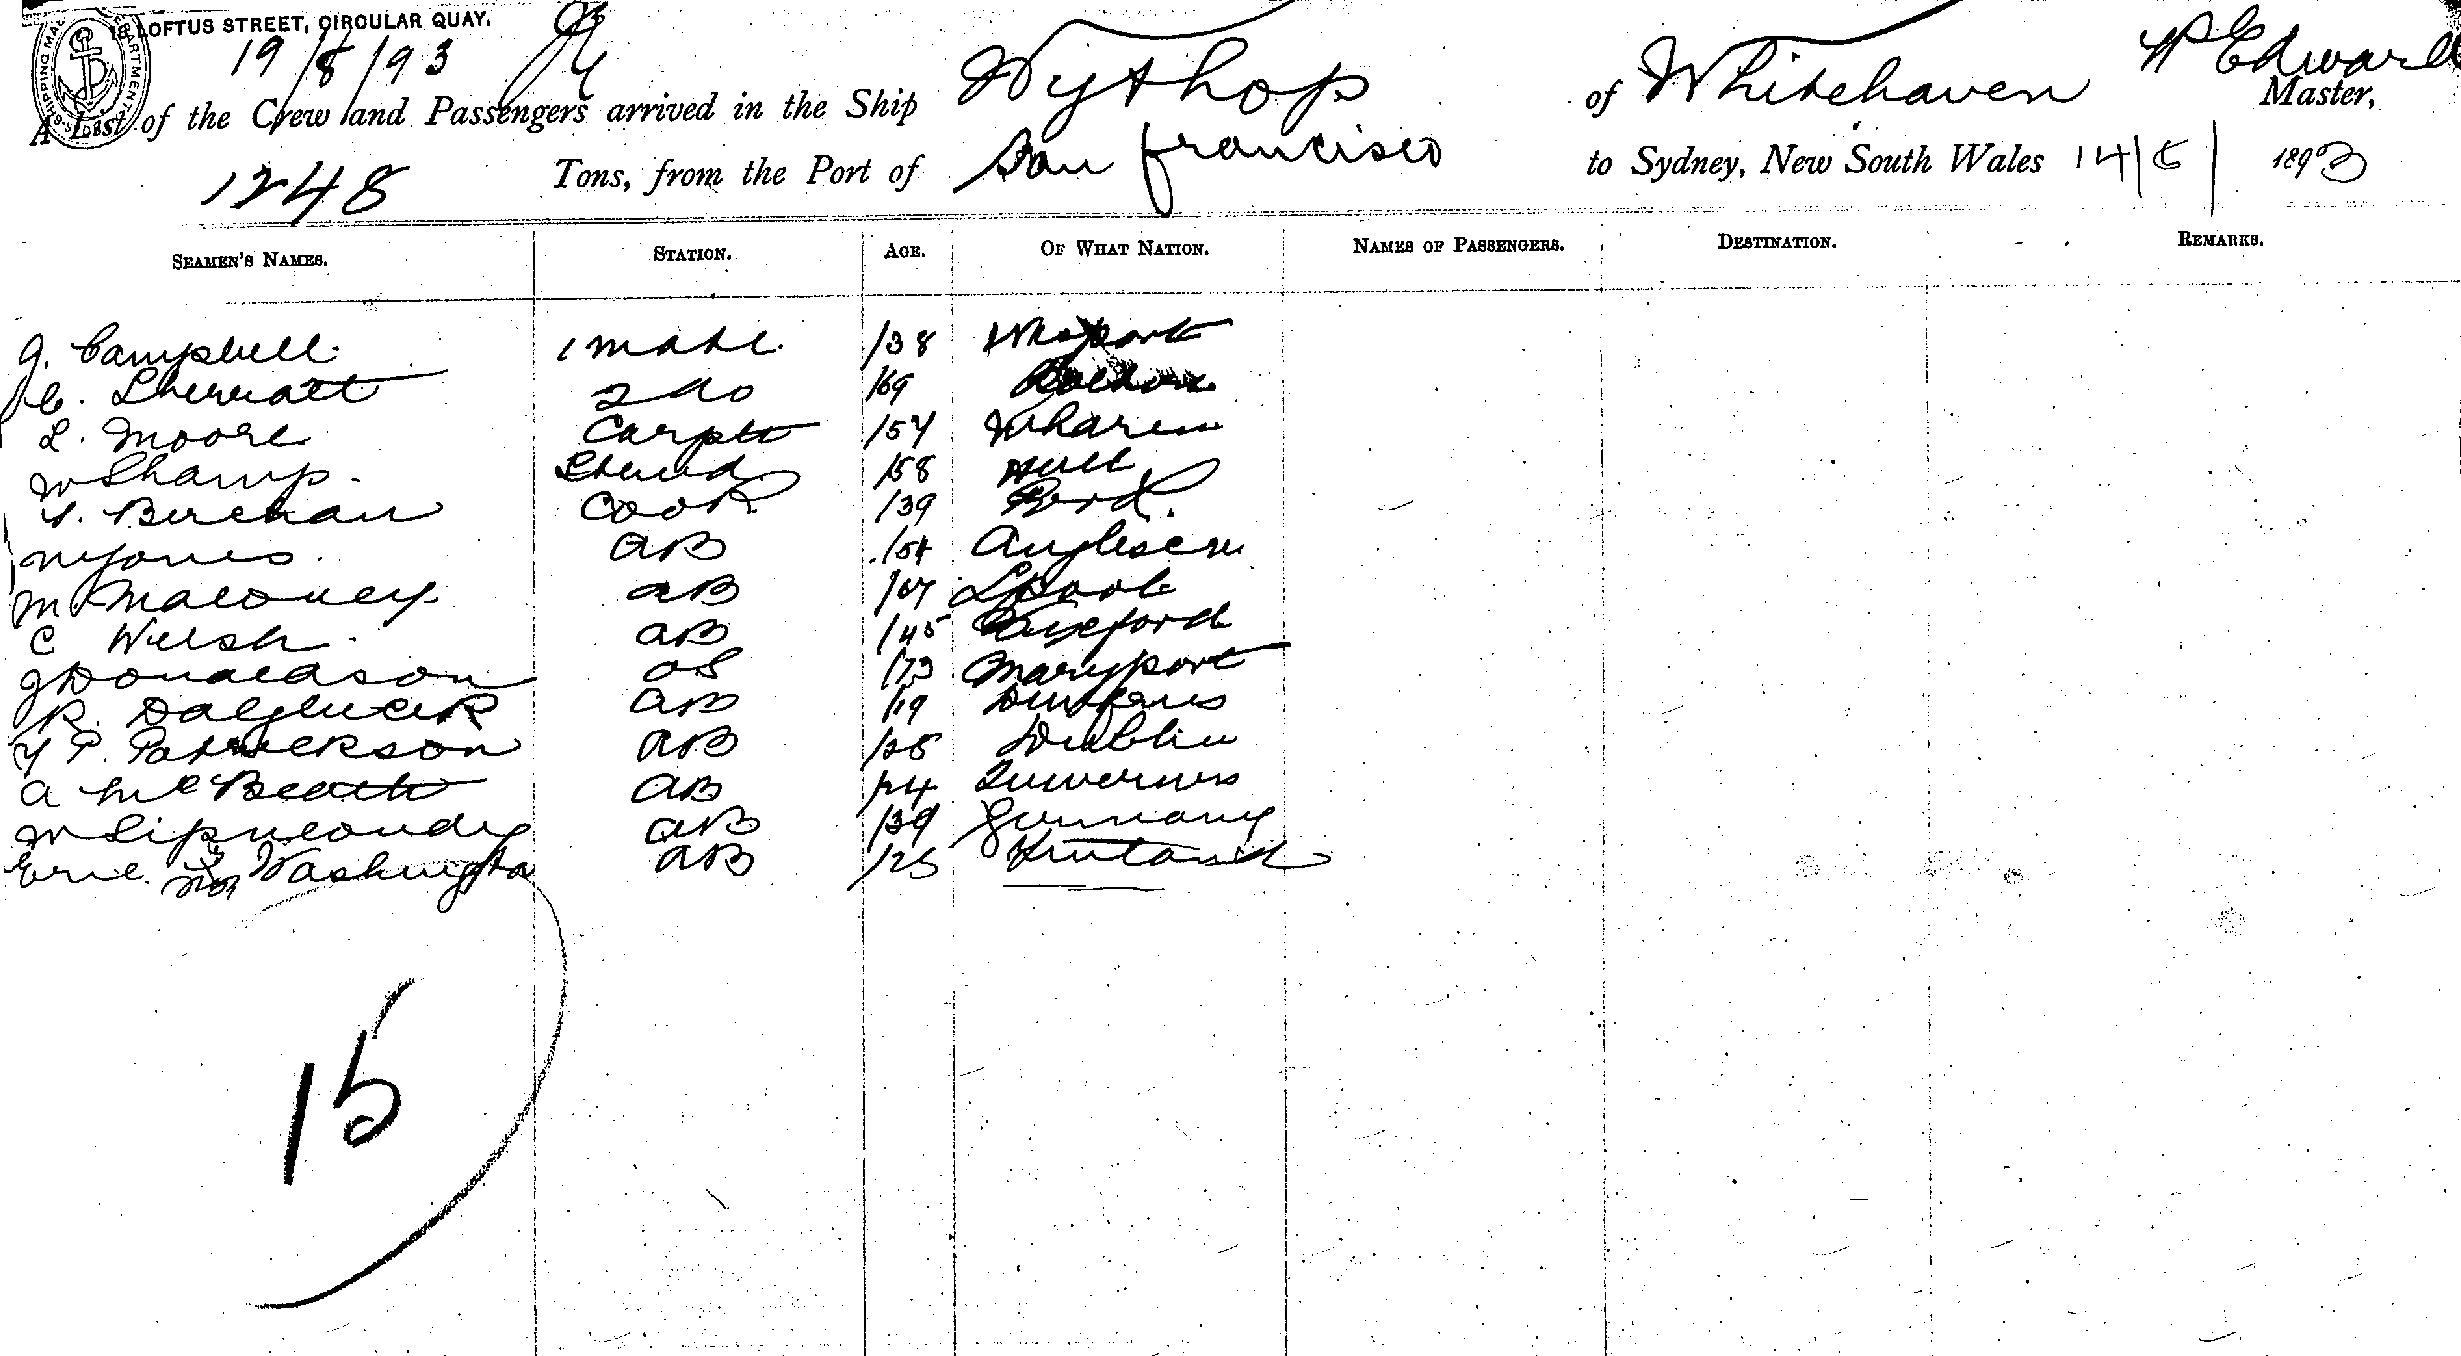 18 LOFTUS STREET, CIRCULAR QUAY.
19/8/93
A List of the Crew and Passengers arrived in the Ship Wythop of Whitehaven W Edward Master,
1248 Tons, from the Port of San Francisco to Sydney, New South Wales 14/8/1893
SEAMEN'S NAMES. STATION. AGE. OF WHAT NATION. NAMES OF PASSENGERS. DESTINATION. REMARKS.
J. Campbell 1 mate /38
C. Sherratt 2 do /69
L. Moore Carptr /54 Whaven
W Sharp Steward /58 Hull
Cook /39
W Jones AB /54 Anglesea
M Maloney AB Lpool
C Welsh AB /45 Wexford
J Donaldson OS /73 Maryport
R. Dalgliesh AB /19 Dumfries
T P. Patrickson AB /25 Dublin
A McBeath AB /24 Inverness
W AB /39 Germany
Eric Washington AB /25
15